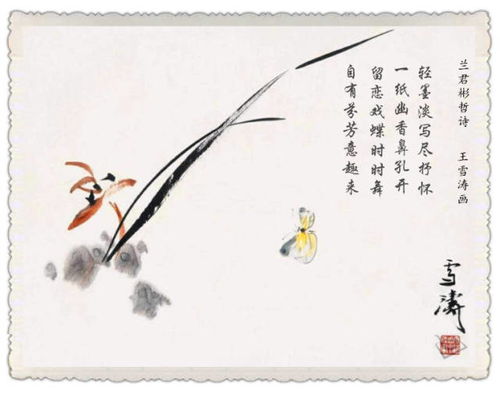 兰君彬哲诗 王雪涛画
轻墨淡写尽抒怀
一纸幽香鼻孔开
留恋戏蝶时时舞
自有芬芳意趣来
雪涛